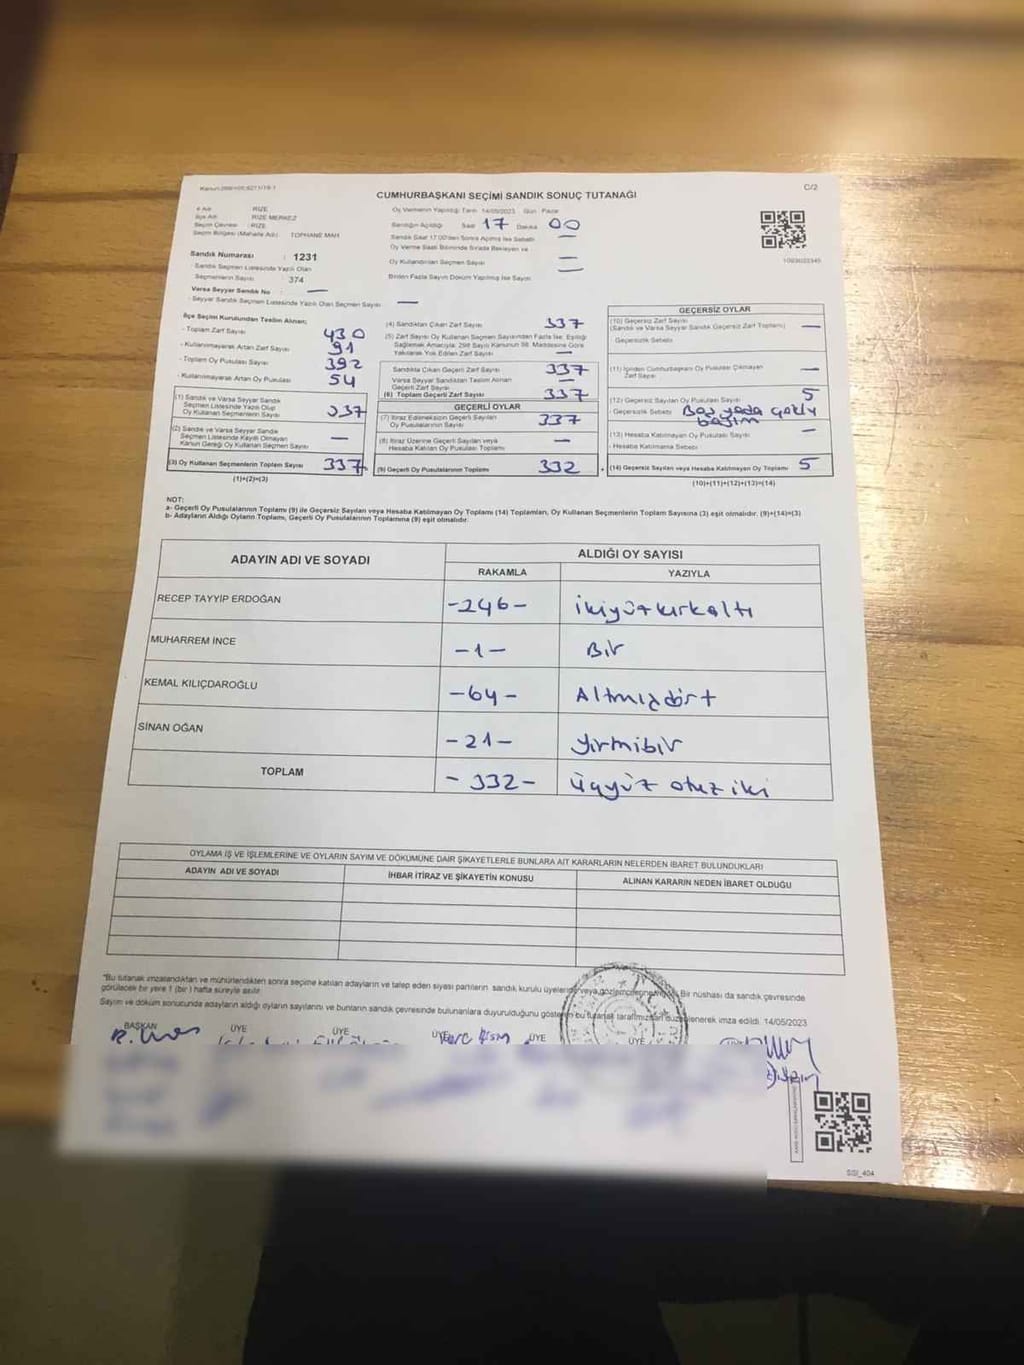 C/2
CUMHURBAŞKANI SEÇİMİ SANDIK SONUÇ TUTANAĞI
İl Adı : RİZE
İlçe Adı : RİZE MERKEZ
Seçim Çevresi : RİZE
Seçim Bölgesi (Mahalle Adı) : TOPHANE MAH.
Oy Vermenin Yapıldığı Tarih 14/05/2023 Gün Pazar
Sandığın Açıldığı Saat 17 Dakika 00
Sandık Saat 17:00'den Sonra Açılmış İse Sebebi —
Oy Verme Saati Bitiminde Sırada Bekleyen ve
Oy Kullandırılan Seçmen Sayısı —
Birden Fazla Sayım Döküm Yapılmış İse Sayısı —
1093022345
Sandık Numarası : 1231
- Sandık Seçmen Listesinde Yazılı Olan
Seçmenlerin Sayısı : 374
Varsa Seyyar Sandık No : —
- Seyyar Sandık Seçmen Listesinde Yazılı Olan Seçmen Sayısı —
İlçe Seçim Kurulundan Teslim Alınan;
- Toplam Zarf Sayısı 430
- Kullanılmayarak Artan Zarf Sayısı 91
- Toplam Oy Pusulası Sayısı 392
- Kullanılmayarak Artan Oy Pusulası 54
(1) Sandık ve Varsa Seyyar Sandık
Seçmen Listesinde Yazılı Olup
Oy Kullanan Seçmenlerin Sayısı 337
(2) Sandık ve Varsa Seyyar Sandık
Seçmen Listesinde Kayıtlı Olmayan
Kanun Gereği Oy Kullanan Seçmen Sayısı —
(3) Oy Kullanan Seçmenlerin Toplam Sayısı 337
(1)+(2)=(3)
(4) Sandıktan Çıkan Zarf Sayısı 337
(5) Zarf Sayısı Oy Kullanan Seçmen Sayısından Fazla İse; Eşitliği
Sağlamak Amacıyla, 298 Sayılı Kanunun 98. Maddesine Göre
Yakılarak Yok Edilen Zarf Sayısı —
Sandıkta Çıkan Geçerli Zarf Sayısı 337
Varsa Seyyar Sandıktan Teslim Alınan
Geçerli Zarf Sayısı —
(6) Toplam Geçerli Zarf Sayısı 337
GEÇERLİ OYLAR
(7) İtiraz Edilmeksizin Geçerli Sayılan
Oy Pusulalarının Sayısı 337
(8) İtiraz Üzerine Geçerli Sayılan veya
Hesaba Katılan Oy Pusulası Toplamı —
(9) Geçerli Oy Pusulalarının Toplamı 332
GEÇERSİZ OYLAR
(10) Geçersiz Zarf Sayısı
(Sandık ve Varsa Seyyar Sandık Geçersiz Zarf Toplamı) —
Geçersizlik Sebebi
(11) İçinden Cumhurbaşkanı Oy Pusulası Çıkmayan
Zarf Sayısı —
(12) Geçersiz Sayılan Oy Pusulası Sayısı 5
- Geçersizlik Sebebi Boş yada çoklu
(13) Hesaba Katılmayan Oy Pusulası Sayısı —
- Hesaba Katılmama Sebebi
+ (14) Geçersiz Sayılan veya Hesaba Katılmayan Oy Toplamı 5
(10)+(11)+(12)+(13)=(14)
NOT:
a- Geçerli Oy Pusulalarının Toplamı (9) ile Geçersiz Sayılan veya Hesaba Katılmayan Oy Toplamı (14) Toplamları, Oy Kullanan Seçmenlerin Toplam Sayısına (3) eşit olmalıdır. (9)+(14)=(3)
b- Adayların Aldığı Oyların Toplamı, Geçerli Oy Pusulalarının Toplamına (9) eşit olmalıdır.
ADAYIN ADI VE SOYADI
ALDIĞI OY SAYISI
RAKAMLA YAZIYLA
RECEP TAYYİP ERDOĞAN -246- ikiyüzkırkaltı
MUHARREM İNCE -1- Bir
KEMAL KILIÇDAROĞLU -64- Altmışdört
SİNAN OĞAN -21- yirmibir
TOPLAM -332- üçyüz otuz iki
OYLAMA İŞ VE İŞLEMLERİNE VE OYLARIN SAYIM VE DÖKÜMÜNE DAİR ŞİKAYETLERLE BUNLARA AİT KARARLARIN NELERDEN İBARET BULUNDUKLARI
ADAYIN ADI VE SOYADI İHBAR İTİRAZ VE ŞİKAYETİN KONUSU ALINAN KARARIN NEDEN İBARET OLDUĞU
"Bu tutanak imzalandıktan ve mühürlendikten sonra seçime katılan adayların ve talep eden siyasi partilerin sandık kurulu üyelerine veya gözlemcilerine Bir nüshası da sandık çevresinde
görülecek bir yere 1 (bir) hafta süreyle asılır.
Sayım ve döküm sonucunda adayların aldığı oyların sayılarını ve bunların sandık çevresinde bulunanlara duyurulduğunu gösteren bu tutanak tarafımızdan düzenlenerek imza edildi. 14/05/2023
BAŞKAN ÜYE ÜYE ÜYE ÜYE ÜYE
SISI_404